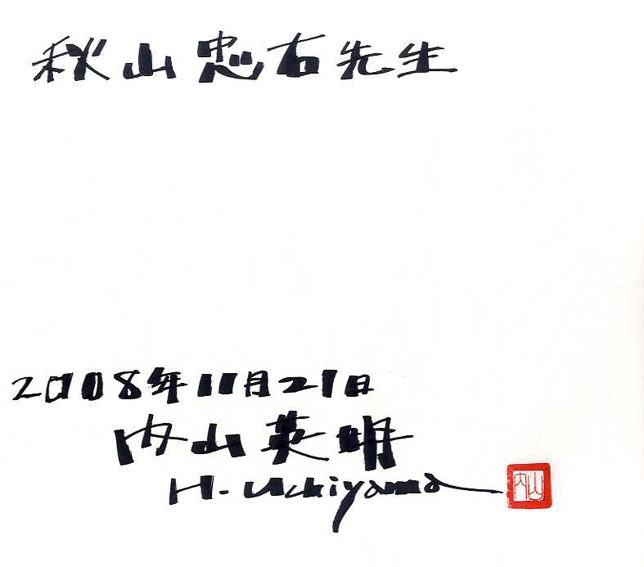 秋山忠右先生
2008年11月21日
内山英明
H. Uchiyama
内山